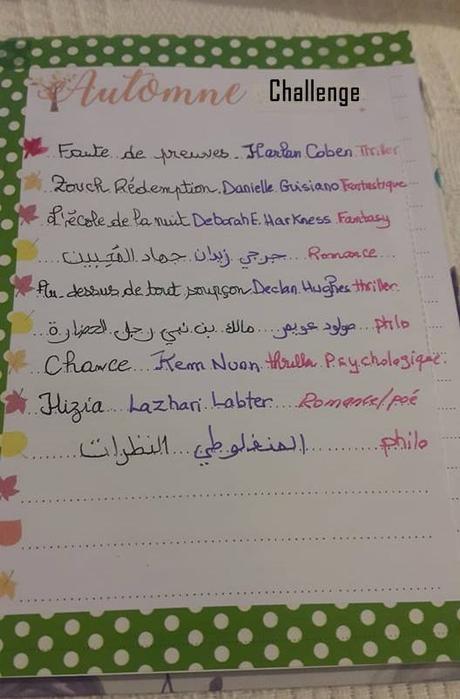 Automne Challenge
Faute de preuves. Harlan Coben. Thriller
Touch Rédemption. Danielle Guisiano Fantastique
L'école de la nuit Deborah E. Harkness Fantasy
جرجي زيدان جهاد المحبين Romance
Au dessus de tout soupçon. Declan Hughes thriller.
مولود عويمر مالك بن نبي رجل الحضارة philo
Chance Kem Nunn thriller Psychologique.
Hizia Lazhari Labter Romance/poé
المنفلوطي النظرات philo